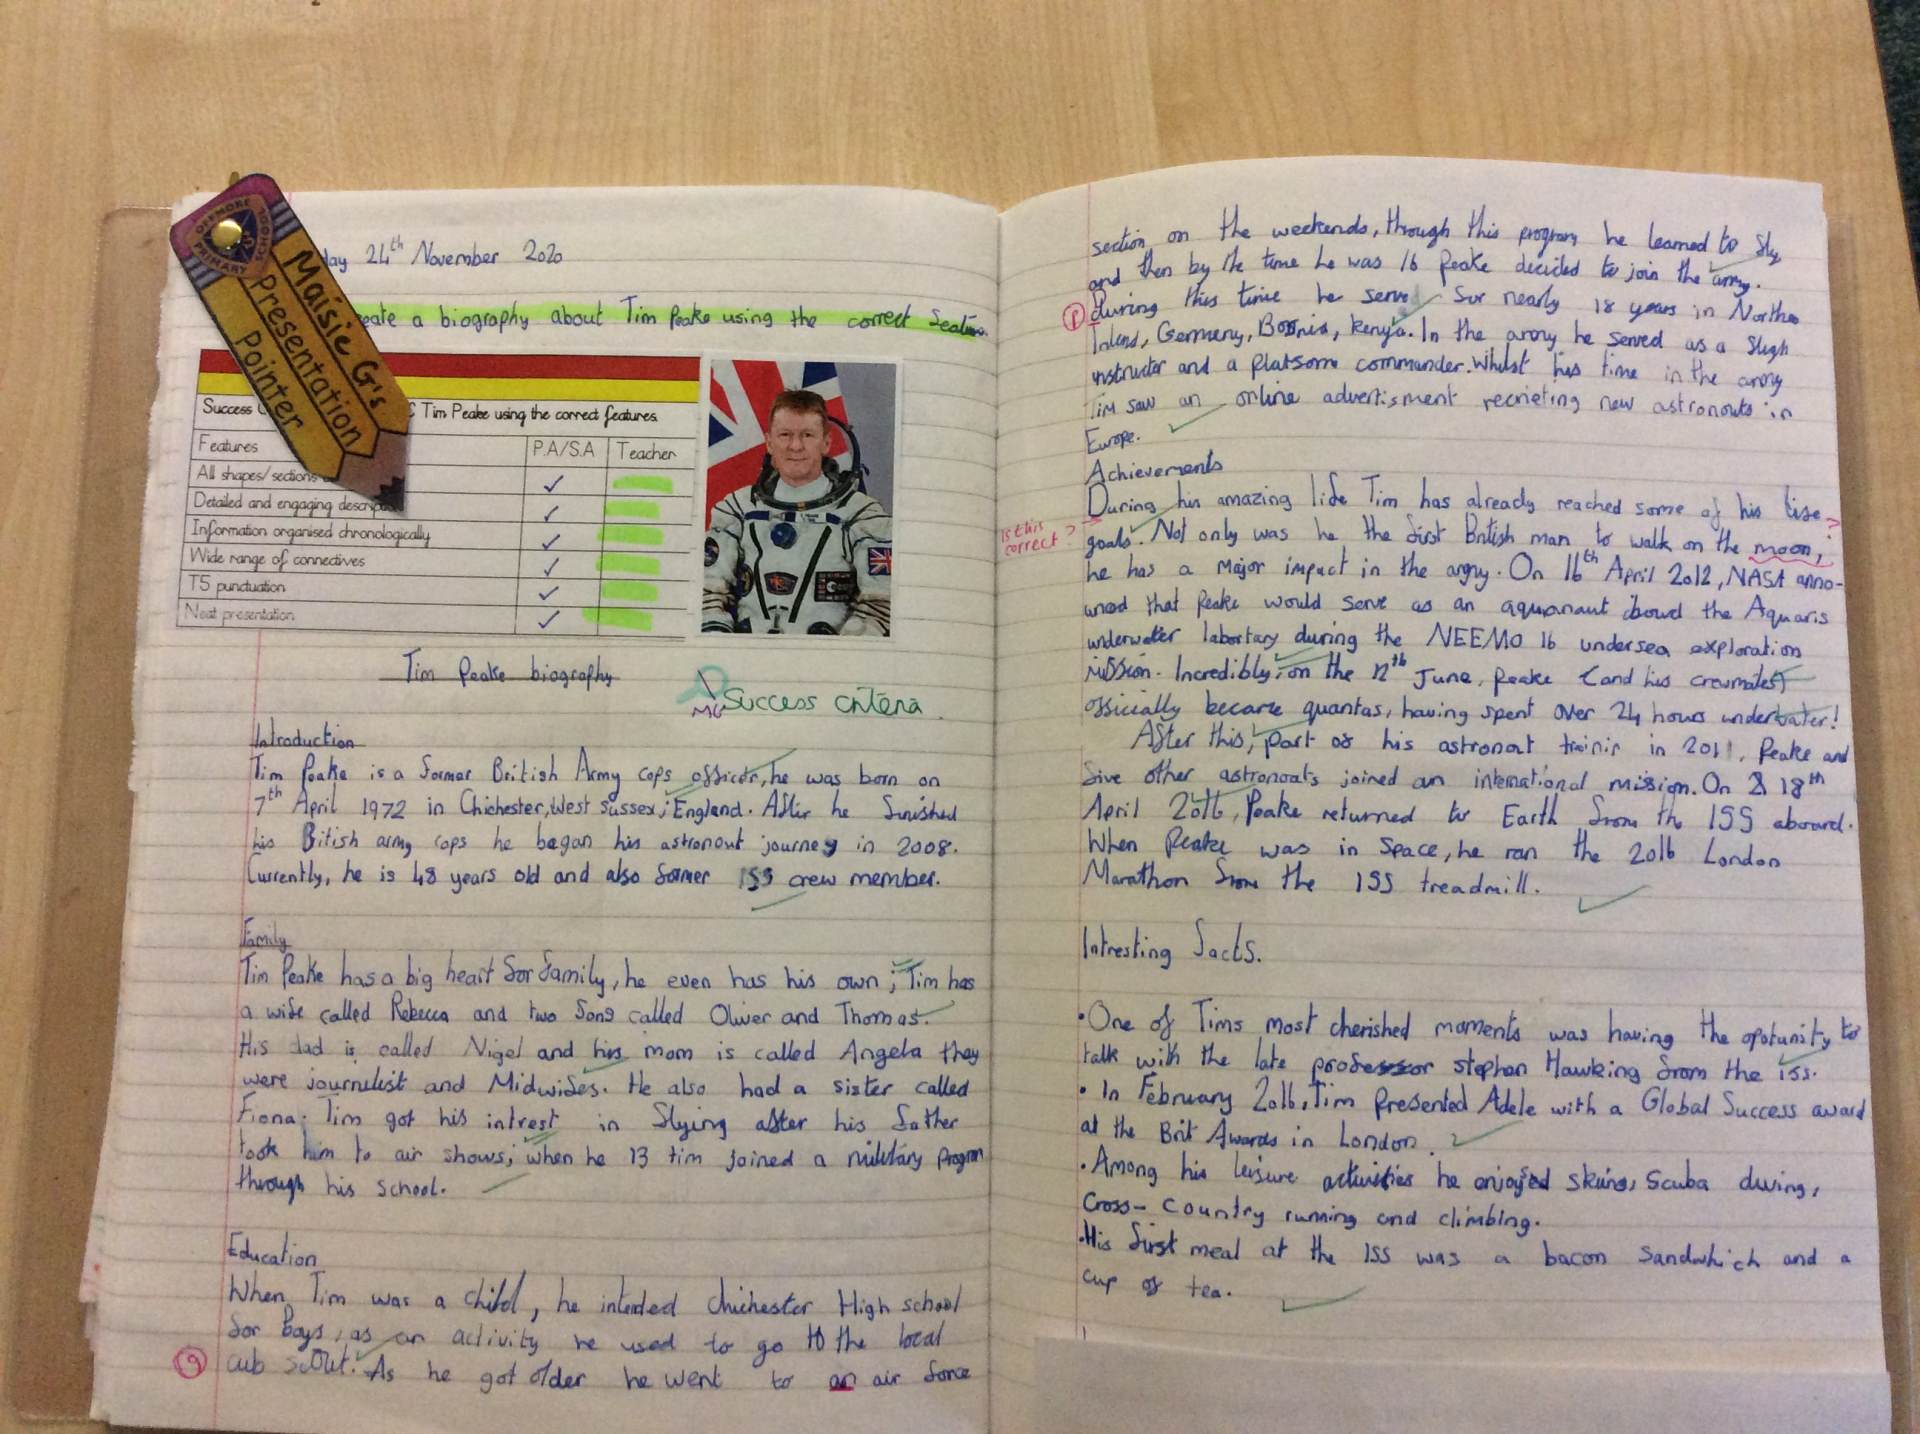 OFFMORE PRIMARY SCHOOL
Maisie G's
Presentation
Pointer
day 24th November 2020
eate a biography about Tim Peake using the correct
Success C Tim Peake using the correct features.
Features P.A/S.A Teacher
All shapes/sections ✓
Detailed and engaging descript ✓
Information organised chronologically ✓
Wide range of connectives ✓
T5 punctuation ✓
Neat presentation ✓
Tim Peake biography
MG Success criteria
Introduction
Tim Peake is a former British Army cops officer, he was born on
7th April 1972 in Chichester, West Sussex; England. After he finished
his British army cops he began his astronout journey in 2008.
Currently, he is 48 years old and also former ISS crew member.
Family
Tim Peake has a big heart for family, he even has his own; Tim has
a wife called Rebecca and two sons called Oliver and Thomas.
His dad is called Nigel and his mom is called Angela they
were journalist and Midwifes. He also had a sister called
Fiona. Tim got his intrest in flying after his father
took him to air shows; when he 13 tim joined a military program
through his school.
Education
When Tim was a child, he intended chichester High school
for Boys, as an activity he used to go to the local
cub scout. As he got older he went to an air force
section on the weekends, through this program he learned to fly
and then by the time he was 16 Peake decided to join the army.
P During this time he serve for nearly 18 years in Northen
Germany, Bosnia, Kenya. In the army he served as a fligh
instructer and a platsome commander. Whilst his time in the army
Tim saw an online advertisment recrieting new astronouts in
Europe.
Achievements
During his amazing life Tim has already reached some of his life
is this correct?
goals. Not only was he the first British man to walk on the moon, ?
he has a major impact in the army. On 16th April 2012, NASA anno-
unced that Peake would serve as an aquanaut abourd the Aquaris
underwater labortary during the NEEMO 16 undersea exploration
mission. Incredibly, on the 12th June, Peake (and his crewmates)
officially became quantas, having spent over 24 hours underwater!
After this, part of his astronat trainin in 2011, Peake and
five other astronoats joined an international mission. On 18th
April 2016, Peake returned to Earth from the ISS aboard.
When Peake was in Space, he ran the 2016 London
Marathon from the ISS treadmill.
Intresting facts.
• One of Tims most cherished moments was having the opotunity to
talk with the late professor stephen Hawking from the iss.
• In February 2016, Tim presented Adele with a Global Success award
at the Brit Awards in London.
• Among his leisure activities he enjoyed skiing, Scuba diving,
Cross-country running and climbing.
• His first meal at the ISS was a bacon sandwhich and a
cup of tea.